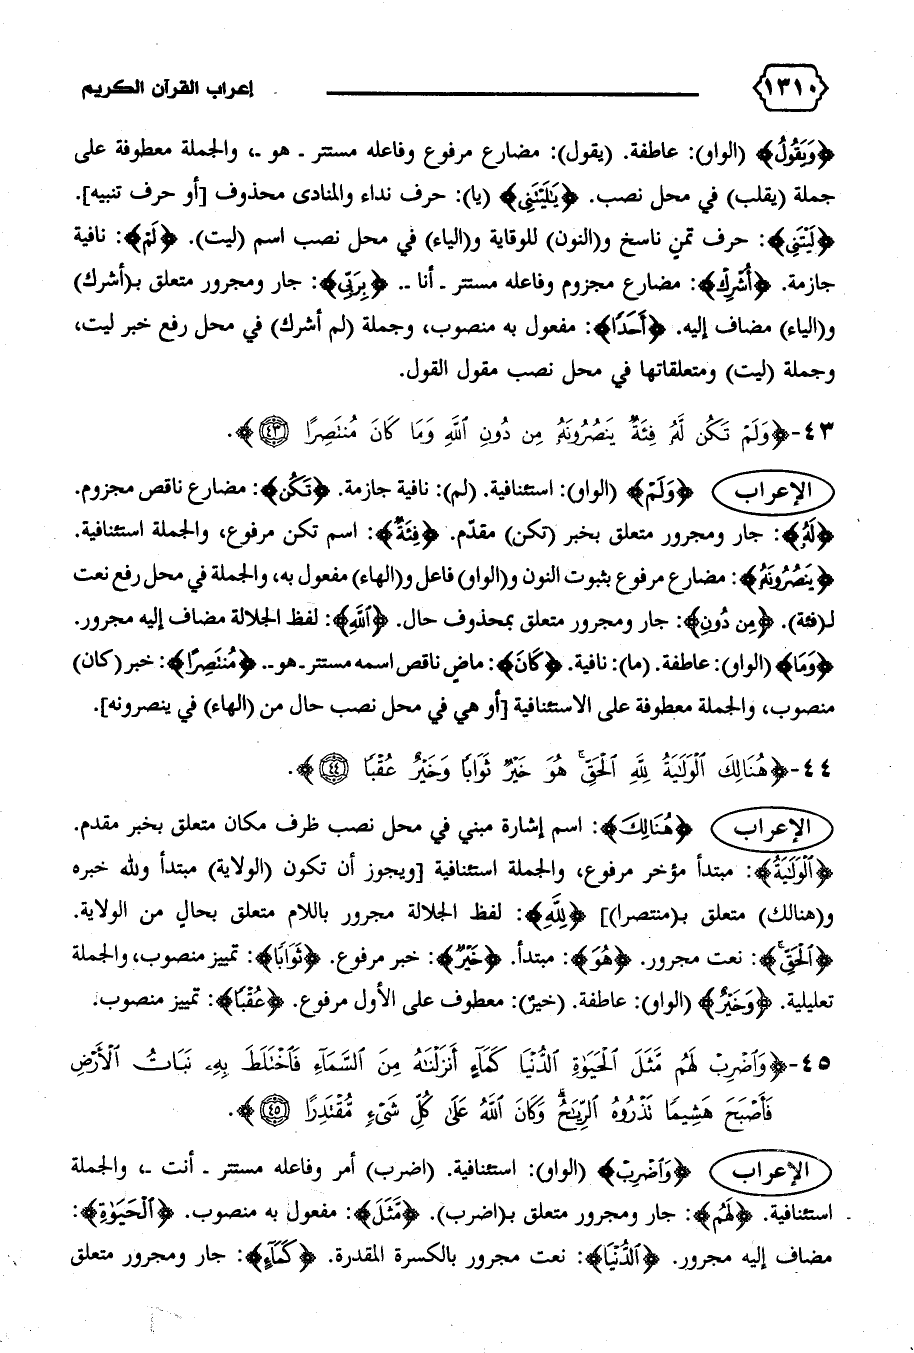 ١٣١٠ إعراب القرآن الكريم
﴿وَيَقُولُ﴾ (الواو): عاطفة. (يقول): مضارع مرفوع وفاعله مستتر ـ هو ـ، والجملة معطوفة على
جملة (يقلب) في محل نصب. ﴿يَٰلَيْتَنِي﴾ (يا): حرف نداء والمنادى محذوف [أو حرف تنبيه].
﴿لَيْتَنِي﴾: حرف تمنٍ ناسخ و(النون) للوقاية و(الياء) في محل نصب اسم (ليت). ﴿لَمْ﴾: نافية
جازمة. ﴿أُشْرِكْ﴾: مضارع مجزوم وفاعله مستتر ـ أنا ـ. ﴿بِرَبِّي﴾: جار ومجرور متعلق بـ(أشرك)
و(الياء) مضاف إليه. ﴿أَحَدًا﴾: مفعول به منصوب، وجملة (لم أشرك) في محل رفع خبر ليت،
وجملة (ليت) ومتعلقاتها في محل نصب مقول القول.
٤٣-﴿وَلَمْ تَكُن لَّهُۥ فِئَةٌ يَنصُرُونَهُۥ مِن دُونِ ٱللَّهِ وَمَا كَانَ مُنتَصِرًا ۝٤٣﴾.
الإعراب ﴿وَلَمْ﴾ (الواو): استئنافية. (لم): نافية جازمة. ﴿تَكُن﴾: مضارع ناقص مجزوم.
﴿لَّهُۥ﴾: جار ومجرور متعلق بخبر (تكن) مقدّم. ﴿فِئَةٌ﴾: اسم تكن مرفوع، والجملة استئنافية.
﴿يَنصُرُونَهُۥ﴾: مضارع مرفوع بثبوت النون و(الواو) فاعل و(الهاء) مفعول به، والجملة في محل رفع نعت
لـ(فئة). ﴿مِن دُونِ﴾: جار ومجرور متعلق بمحذوف حال. ﴿ٱللَّهِ﴾: لفظ الجلالة مضاف إليه مجرور.
﴿وَمَا﴾ (الواو): عاطفة. (ما): نافية. ﴿كَانَ﴾: ماضٍ ناقص اسمه مستتر ـ هو ـ. ﴿مُنتَصِرًا﴾: خبر (كان)
منصوب، والجملة معطوفة على الاستئنافية [أو هي في محل نصب حال من (الهاء) في ينصرونه].
٤٤-﴿هُنَالِكَ ٱلْوَلَٰيَةُ لِلَّهِ ٱلْحَقِّ ۚ هُوَ خَيْرٌ ثَوَابًا وَخَيْرٌ عُقْبًا ۝٤٤﴾.
الإعراب ﴿هُنَالِكَ﴾: اسم إشارة مبني في محل نصب ظرف مكان متعلق بخبر مقدم.
﴿ٱلْوَلَٰيَةُ﴾: مبتدأ مؤخر مرفوع، والجملة استئنافية [ويجوز أن تكون (الولاية) مبتدأ ولله خبره
و(هنالك) متعلق بـ(منتصرا)] ﴿لِلَّهِ﴾: لفظ الجلالة مجرور باللام متعلق بحالٍ من الولاية.
﴿ٱلْحَقِّ ۚ﴾: نعت مجرور. ﴿هُوَ﴾: مبتدأ. ﴿خَيْرٌ﴾: خبر مرفوع. ﴿ثَوَابًا﴾: تمييز منصوب، والجملة
تعليلية. ﴿وَخَيْرٌ﴾ (الواو): عاطفة. (خيرٌ): معطوف على الأول مرفوع. ﴿عُقْبًا﴾: تمييز منصوب.
٤٥-﴿وَٱضْرِبْ لَهُم مَّثَلَ ٱلْحَيَوٰةِ ٱلدُّنْيَا كَمَآءٍ أَنزَلْنَٰهُ مِنَ ٱلسَّمَآءِ فَٱخْتَلَطَ بِهِۦ نَبَاتُ ٱلْأَرْضِ
فَأَصْبَحَ هَشِيمًا تَذْرُوهُ ٱلرِّيَٰحُ ۗ وَكَانَ ٱللَّهُ عَلَىٰ كُلِّ شَىْءٍ مُّقْتَدِرًا ۝٤٥﴾.
الإعراب ﴿وَٱضْرِبْ﴾ (الواو): استئنافية. (اضرب) أمر وفاعله مستتر ـ أنت ـ، والجملة
استئنافية. ﴿لَهُم﴾: جار ومجرور متعلق بـ(اضرب). ﴿مَّثَلَ﴾: مفعول به منصوب. ﴿ٱلْحَيَوٰةِ﴾:
مضاف إليه مجرور. ﴿ٱلدُّنْيَا﴾: نعت مجرور بالكسرة المقدرة. ﴿كَمَآءٍ﴾: جار ومجرور متعلق